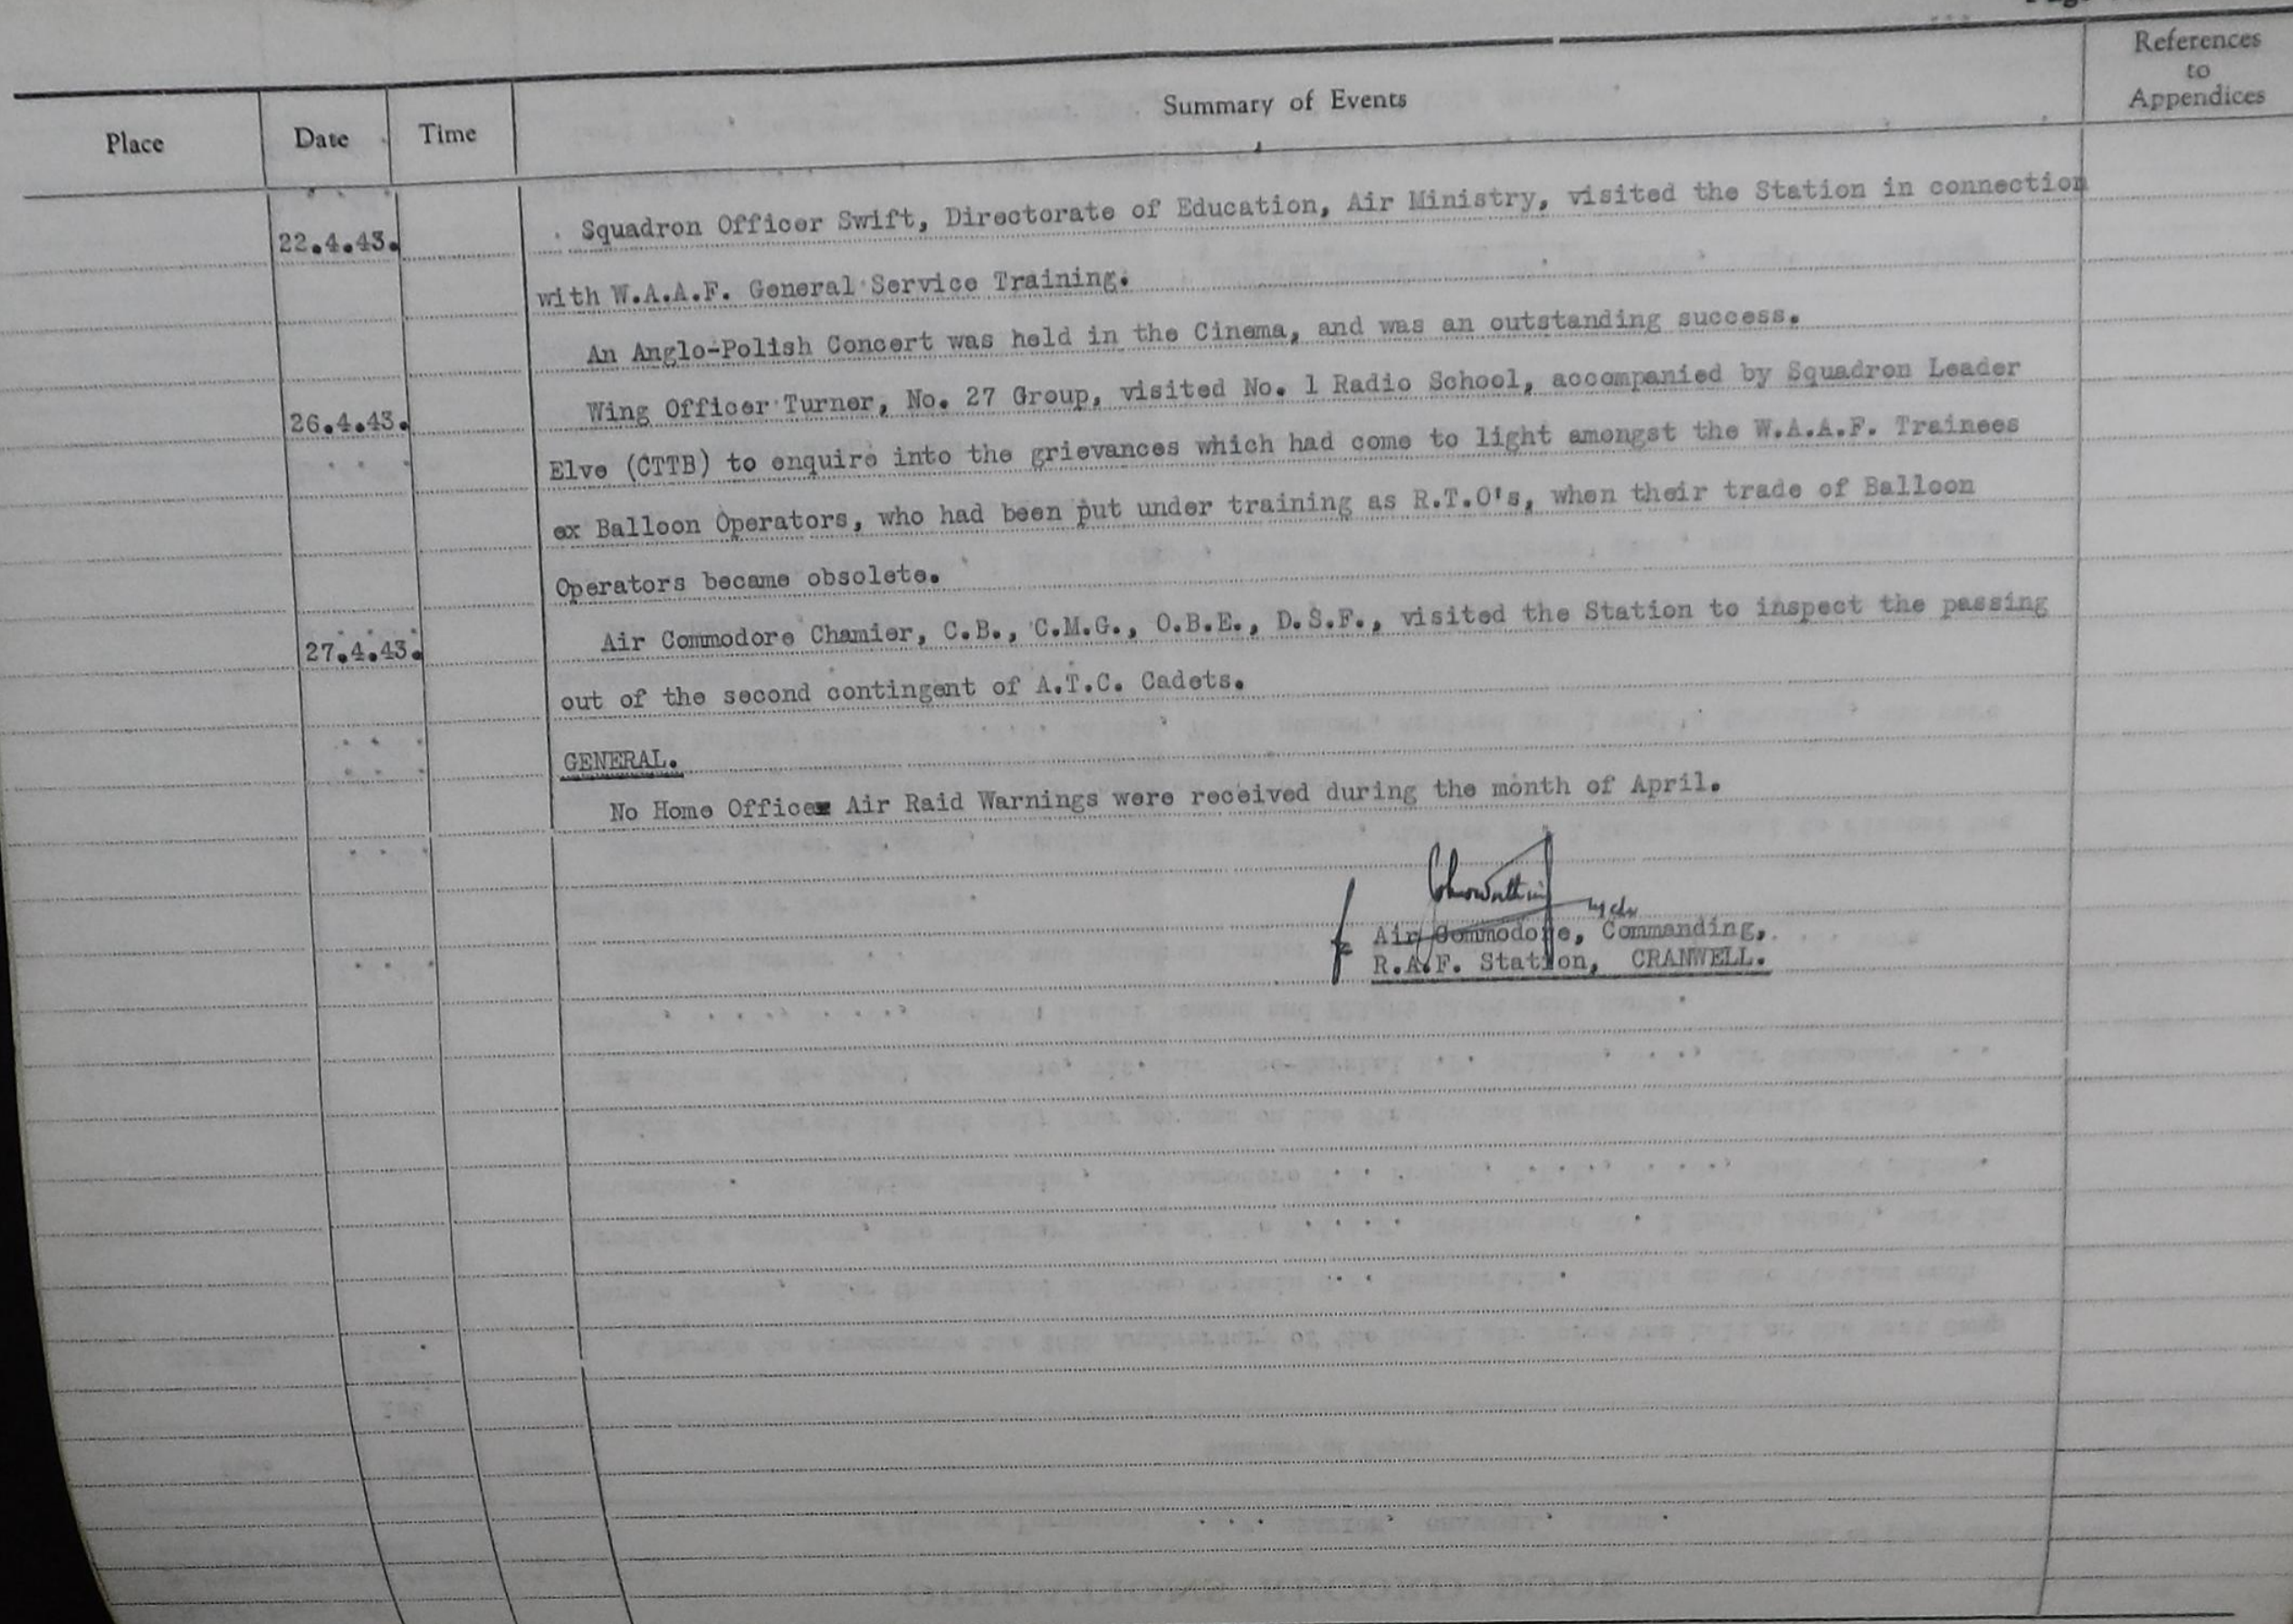 References
to
Appendices
Place Date Time Summary of Events
22.4.43. Squadron Officer Swift, Directorate of Education, Air Ministry, visited the Station in connection
with W.A.A.F. General Service Training.
An Anglo-Polish Concert was held in the Cinema, and was an outstanding success.
26.4.43. Wing Officer Turner, No. 27 Group, visited No. 1 Radio School, accompanied by Squadron Leader
Elve (CTTB) to enquire into the grievances which had come to light amongst the W.A.A.F. Trainees
ex Balloon Operators, who had been put under training as R.T.O's, when their trade of Balloon
Operators became obsolete.
27.4.43. Air Commodore Chamier, C.B., C.M.G., O.B.E., D.S.F., visited the Station to inspect the passing
out of the second contingent of A.T.C. Cadets.
GENERAL.
No Home Office Air Raid Warnings were received during the month of April.
Air Commodore, Commanding,
R.A.F. Station, CRANWELL.